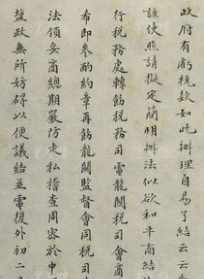 政府有虧稅款如此辦理自易了結云云
該使照請擬定簡明辦法似欲和平商結
行稅務處轉飭稅務司電龍關稅司會商
希即參酌約章再飭龍關監督會同稅司
法領妥商總期嚴防走私稽查周密於中
鹽政無所妨碍以便議結並電復外初二